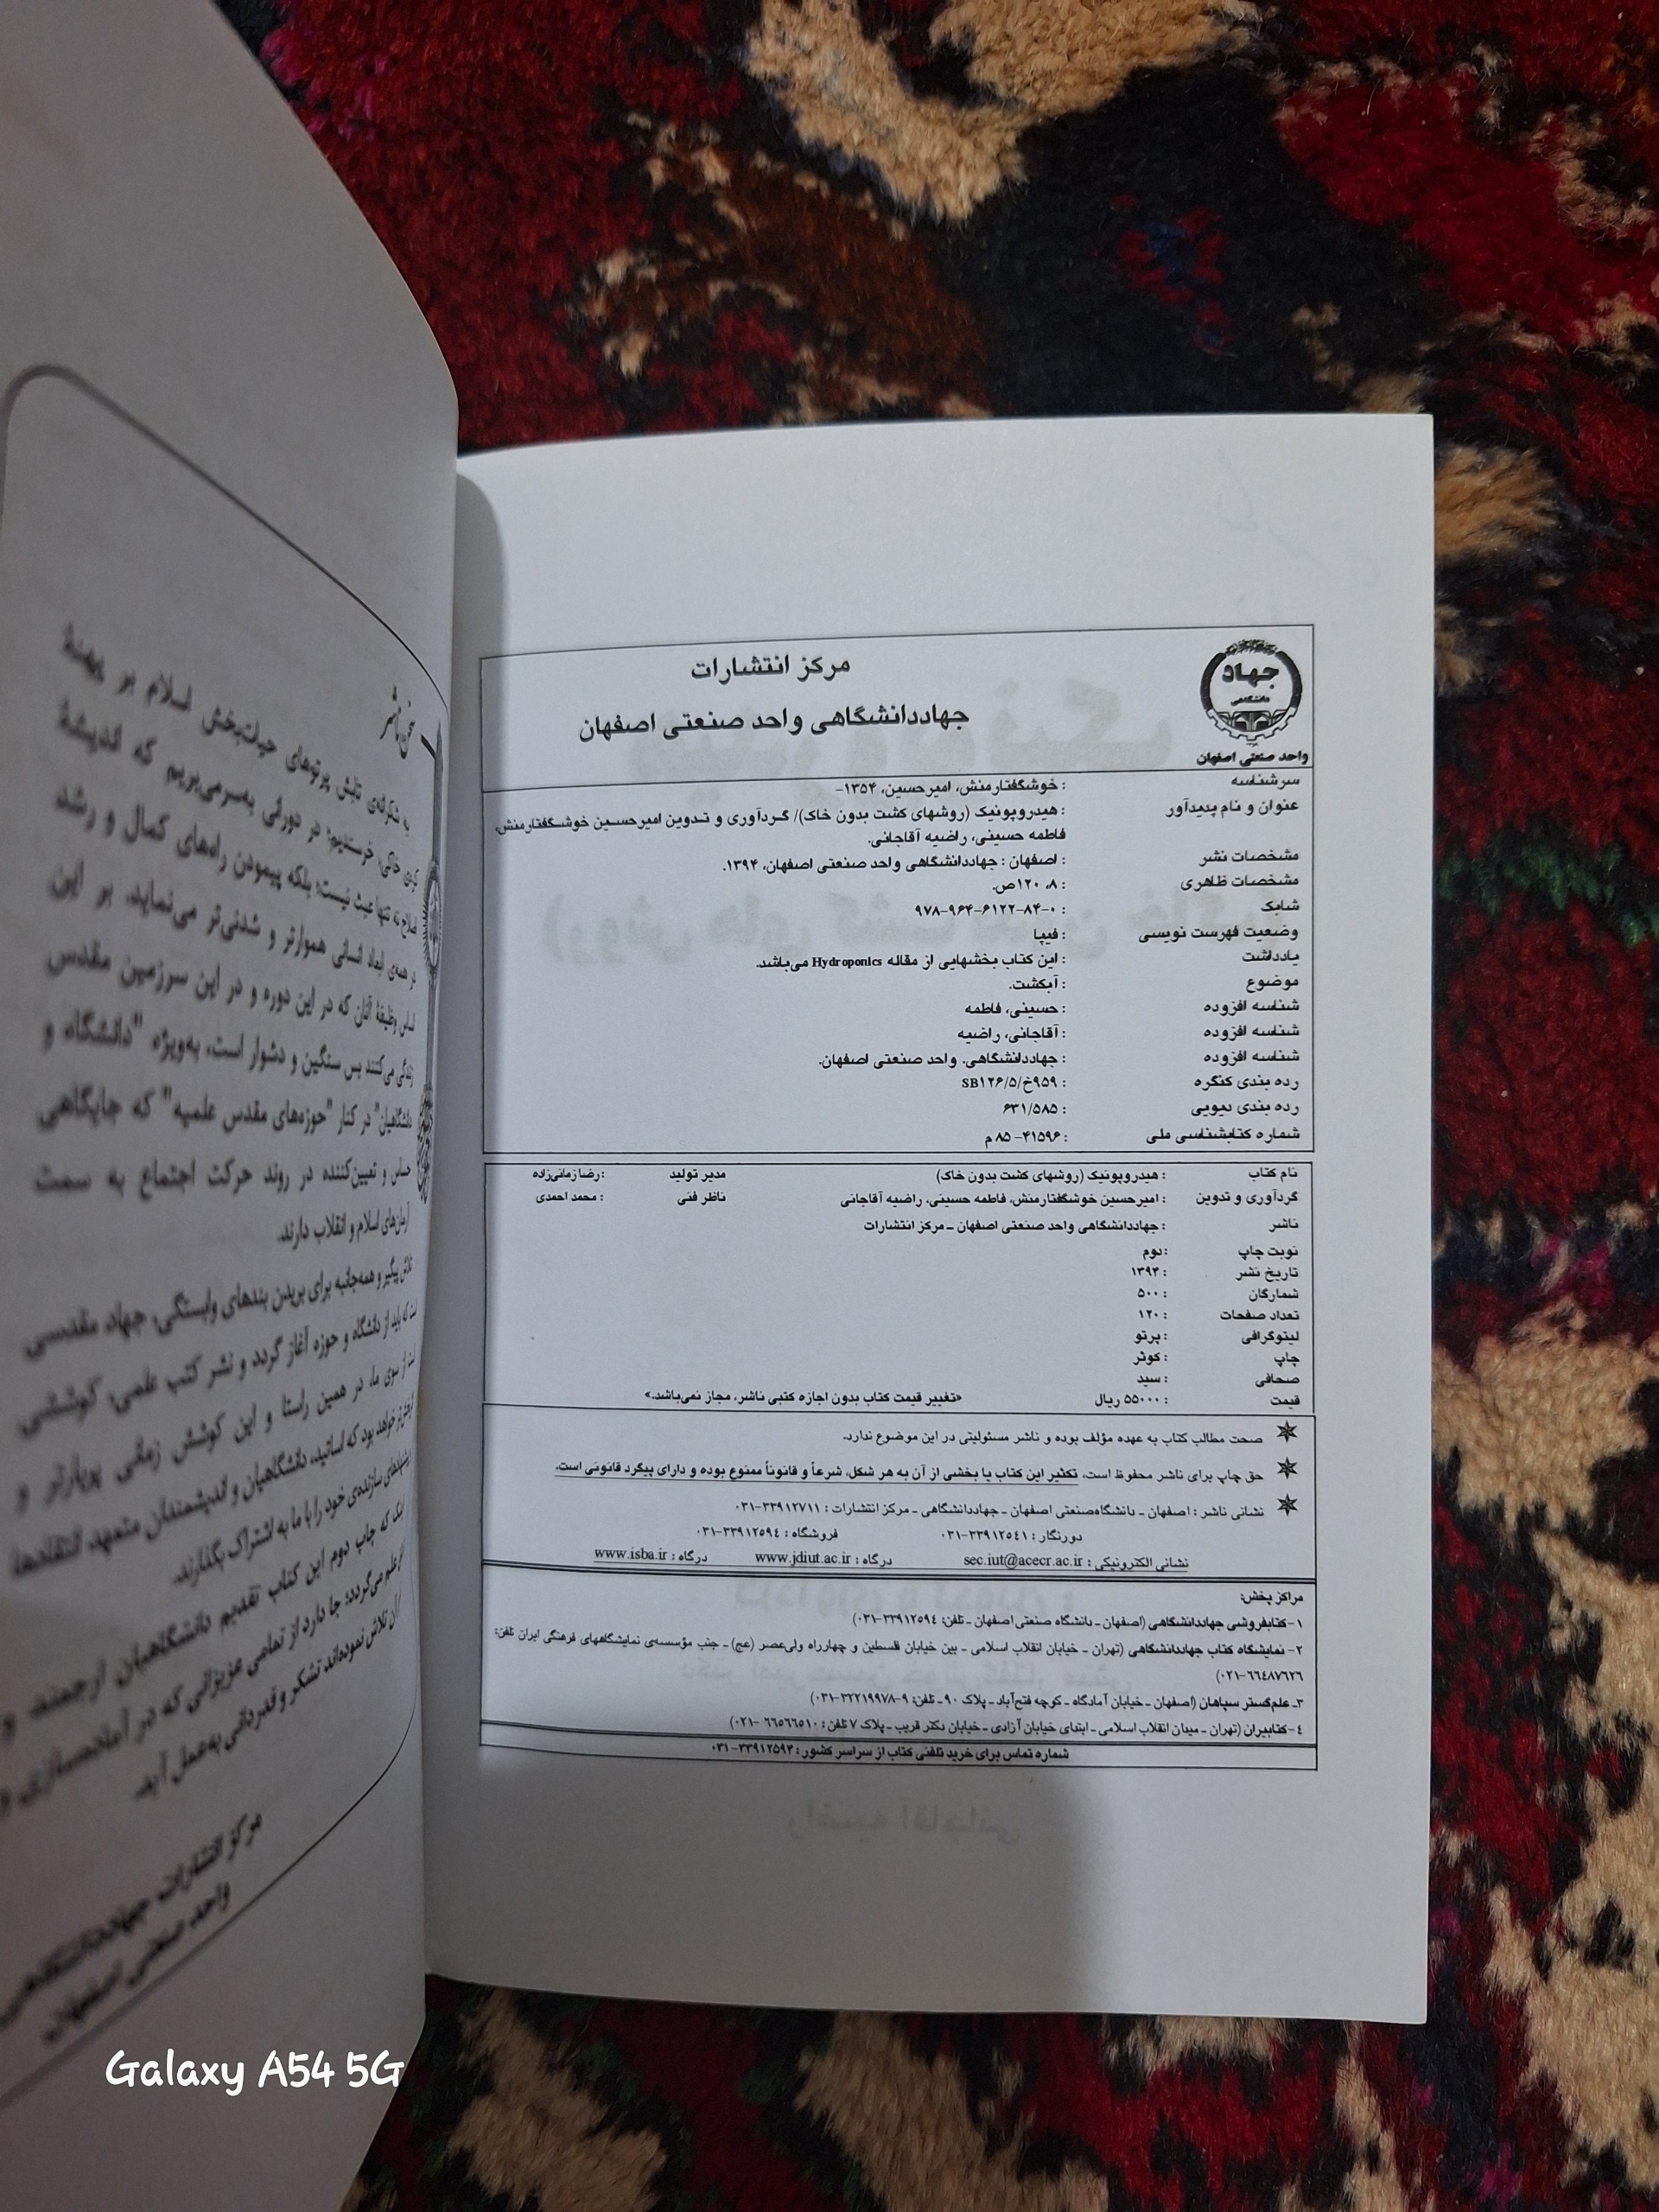 سخن ناشر
به شکرانه‌ی تابش پرتوهای حیات‌بخش اسلام بر پهنهٔ
کره‌ی خاکی، خرسندیم؛ در دورانی به‌سرمی‌بریم که اندیشهٔ
اصلاح نه تنها عبث نیست؛ بلکه پیمودن راه‌های کمال و رشد
در همه‌ی ابعاد انسانی هموارتر و شدنی‌تر می‌نماید. بر این
اساس وظیفهٔ آنان که در این دوره و در این سرزمین مقدس
زندگی می‌کنند بس سنگین و دشوار است، به‌ویژه "دانشگاه و
دانشگاهیان" در کنار "حوزه‌های مقدس علمیه" که جایگاهی
حساس و تعیین‌کننده در روند حرکت اجتماع به سمت
آرمان‌های اسلام و انقلاب دارند.
تلاش پیگیر و همه‌جانبه برای بریدن بندهای وابستگی، جهاد مقدسی
است که باید از دانشگاه و حوزه آغاز گردد و نشر کتب علمی، کوششی
است از سوی ما، در همین راستا و این کوشش زمانی پربارتر و
خواهد بود که اساتید، دانشگاهیان و اندیشمندان متعهد انتقادها
سازنده‌ی خود را با ما به اشتراک بگذارند.
اینک که چاپ دوم این کتاب تقدیم دانشگاهیان ارجمند و
علم می‌گردد؛ جا دارد از تمامی عزیزانی که در آماده‌سازی و
آن تلاش نموده‌اند تشکر و قدردانی به‌عمل آید.
مرکز انتشارات جهاددانشگاهی
واحد صنعتی اصفهان
جهاد
دانشگاهی
واحد صنعتی اصفهان
مرکز انتشارات
جهاددانشگاهی واحد صنعتی اصفهان
سرشناسه : خوشگفتارمنش، امیرحسین، ۱۳۵۴-
عنوان و نام پدیدآور : هیدروپونیک (روشهای کشت بدون خاک)/ گردآوری و تدوین امیرحسین خوشگفتارمنش،
فاطمه حسینی، راضیه آقاجانی.
مشخصات نشر : اصفهان : جهاددانشگاهی واحد صنعتی اصفهان، ۱۳۹۴.
مشخصات ظاهری : ۸، ۱۲۰ص.
شابک : ۹۷۸-۹۶۴-۶۱۲۲-۸۴-۰
وضعیت فهرست نویسی : فیپا
یادداشت : این کتاب بخشهایی از مقاله Hydroponics می‌باشد.
موضوع : آبکشت.
شناسه افزوده : حسینی، فاطمه
شناسه افزوده : آقاجانی، راضیه
شناسه افزوده : جهاددانشگاهی. واحد صنعتی اصفهان.
رده بندی کنگره : SB۱۲۶/۵/خ۹۵۹
رده بندی دیویی : ۶۳۱/۵۸۵
شماره کتابشناسی ملی : ۴۱۵۹۶- ۸۵ م
نام کتاب : هیدروپونیک (روشهای کشت بدون خاک) مدیر تولید : رضا زمانی‌زاده
گردآوری و تدوین : امیرحسین خوشگفتارمنش، فاطمه حسینی، راضیه آقاجانی ناظر فنی : محمد احمدی
ناشر : جهاددانشگاهی واحد صنعتی اصفهان ـ مرکز انتشارات
نوبت چاپ : دوم
تاریخ نشر : ۱۳۹۴
شمارگان : ۵۰۰
تعداد صفحات : ۱۲۰
لیتوگرافی : پرتو
چاپ : کوثر
صحافی : سپید
قیمت : ۵۵۰۰۰ ریال «تغییر قیمت کتاب بدون اجازه کتبی ناشر، مجاز نمی‌باشد.»
صحت مطالب کتاب به عهده مؤلف بوده و ناشر مسئولیتی در این موضوع ندارد.
حق چاپ برای ناشر محفوظ است، تکثیر این کتاب یا بخشی از آن به هر شکل، شرعاً و قانوناً ممنوع بوده و دارای پیگرد قانونی است.
نشانی ناشر : اصفهان ـ دانشگاه‌صنعتی اصفهان ـ جهاددانشگاهی ـ مرکز انتشارات : ۳۳۹۱۲۷۱۱-۰۳۱
دورنگار : ۳۳۹۱۲۵۴۱-۰۳۱ فروشگاه : ۳۳۹۱۲۵۹٤-۰۳۱
نشانی الکترونیکی : sec.iut@acecr.ac.ir درگاه : www.jdiut.ac.ir درگاه : www.isba.ir
مراکز پخش:
۱-کتابفروشی جهاددانشگاهی (اصفهان ـ دانشگاه صنعتی اصفهان ـ تلفن: ۳۳۹۱۲۵۹٤-۰۳۱)
۲- نمایشگاه کتاب جهاددانشگاهی (تهران ـ خیابان انقلاب اسلامی ـ بین خیابان فلسطین و چهارراه ولی‌عصر (عج) ـ جنب مؤسسه‌ی نمایشگاههای فرهنگی ایران تلفن:
۶۶٤۸۷۶۲۶-۰۲۱)
۳ـ علم‌گستر سپاهان (اصفهان ـ خیابان آمادگاه ـ کوچه فتح‌آباد ـ پلاک ۹۰ ـ تلفن: ۹-۳۲۲۱۹۹۷۸-۰۳۱)
٤-کتابیران (تهران ـ میدان انقلاب اسلامی ـ ابتدای خیابان آزادی ـ خیابان دکتر قریب ـ پلاک ۷ تلفن : ۶۶۵۶۶۵۱۰-۰۲۱)
شماره تماس برای خرید تلفنی کتاب از سراسر کشور : ۳۳۹۱۲۵۹۴-۰۳۱
Galaxy A54 5G